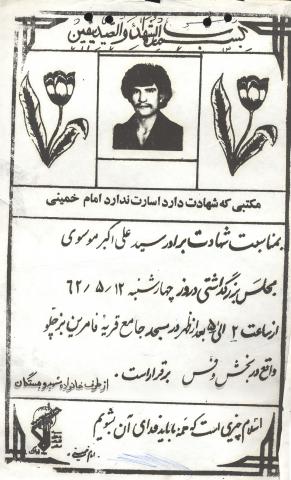 بسم رب الشهداء والصدیقین
مکتبی که شهادت دارد اسارت ندارد امام خمینی
بمناسبت شهادت برادر سید علی اکبر موسوی
مجلس بزرگداشتی در روز چهارشنبه ۶۲/۵/۱۲
از ساعت ۲ الی ۵ بعد از ظهر در مسجد جامع قریه فامرین بزچلو
واقع در بخش وفس برقرار است.
از طرف خانواده شهید و بستگان
اسلام چیزی است که همه ما باید فدای آن بشویم
امام خمینی